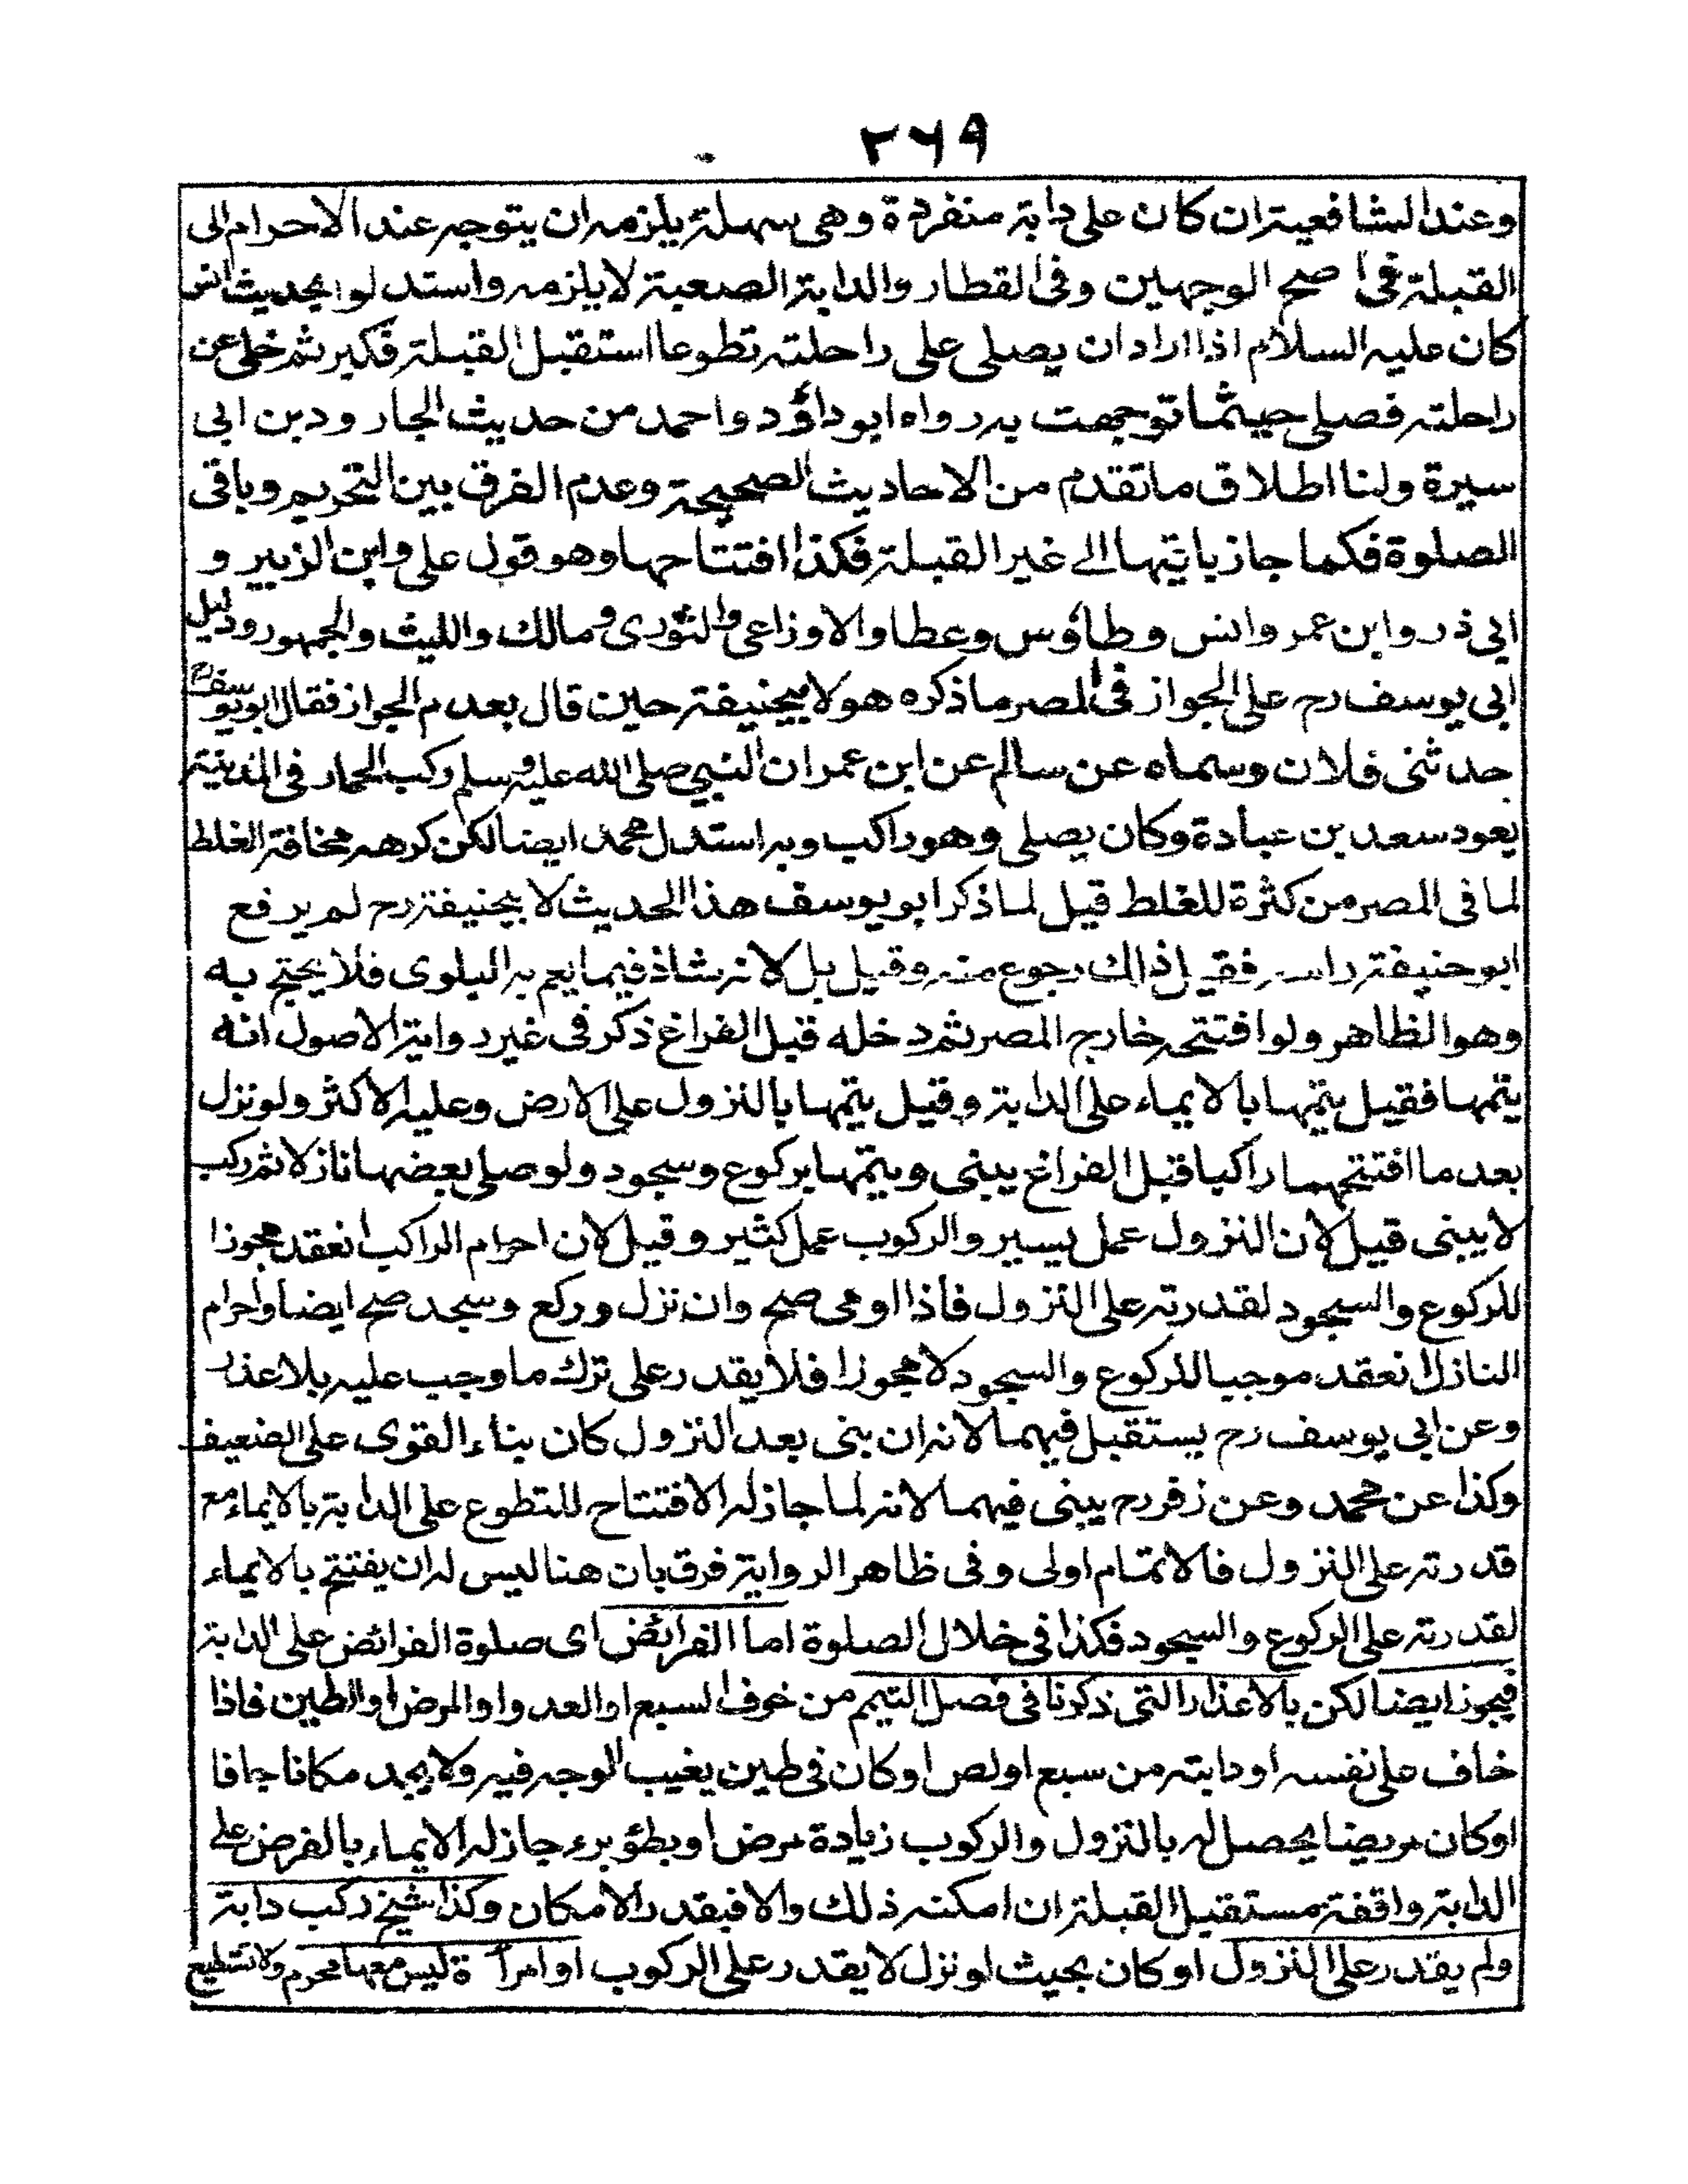 ٢٦٩
وعند الشافعية ان كان على دابة منفردة وهى سهلة يلزمه ان يتوجه عند الاحرام الى
القبلة فى اصح الوجهين وفى القطار والدابة الصعبة لا يلزمه واستدلوا بحديث انس
كان عليه السلام اذا اراد ان يصلى على راحلته تطوعا استقبل القبلة فكبر ثم خلى عن
راحلته فصلى حيثما توجهت به رواه ابو داؤد واحمد من حديث الجارود بن ابى
سبرة ولنا اطلاق ما تقدم من الاحاديث الصحيحة وعدم الفرق بين التحريم وباقى
الصلوة فكما جاز باتيها الى غير القبلة فكذا افتتاحها وهو قول على وابن الزبير و
ابى ذر وابن عمر وانس وطاؤس وعطا والاوزاعى والثورى ومالك والليث والجمهور ودليل
ابى يوسف رح على الجواز فى المصر ما ذكره هو لابيحنيفة حين قال بعدم الجواز فقال ابو يوسف رح
حدثنى فلان وسماه عن سالم عن ابن عمر ان النبى صلى الله عليه وسلم ركب الحمار فى المدينة
يعود سعد بن عبادة وكان يصلى وهو راكب وبه استدل محمد ايضا لكن كرهه مخافة الغلط
لما فى المصر من كثرة للغلط قيل لما ذكر ابو يوسف هذا الحديث لا بيحنيفة رح لم يرفع
ابو حنيفة راسه فقيل ذالك رجوع منه وقيل بل لانه شاذ فيما يعم به البلوى فلا يحتج به
وهو الظاهر ولو افتتحه خارج المصر ثم دخله قبل الفراغ ذكر فى غير رواية الاصول انه
يتمها فقيل يتمها بالايماء على الدابة وقيل يتمها بالنزول على الارض وعليه الاكثر ولو نزل
بعد ما افتتحهما راكبا قبل الفراغ يبنى ويتمها بركوع وسجود ولو صلى بعضها نازلا ثم ركب
لا يبنى قيل لان النزول عمل يسير والركوب عمل كثير وقيل لان احرام الراكب انعقد مجوزا
للركوع والسجود لقدرته على النزول فاذا اومى صح وان نزل وركع وسجد صح ايضا واحرام
النازل انعقد موجبا للركوع والسجود لا مجوزا فلا يقدر على ترك ما وجب عليه بلا عذر
وعن ابى يوسف رح يستقبل فيهما لانه ان بنى بعد النزول كان بناء القوى على الضعيف
وكذا عن محمد وعن زفر رح يبنى فيهما لانه لما جاز له الافتتاح للتطوع على الدابة بالايماء مع
قدرته على النزول فالاتمام اولى وفى ظاهر الرواية فرق بان هنا ليس له ان يفتتح بالايماء
لقدرته على الركوع والسجود فكذا فى خلال الصلوة اما الفرائض اى صلوة الفرائض على الدابة
فيجوز ايضا لكن بالاعذار التى ذكرنا فى فصل التيمم من خوف السبع او العدو او المرض او الطين فاذا
خاف على نفسه او دابته من سبع او لص او كان فى طين يغيب الوجه فيه ولا يجد مكانا جافا
او كان مريضا يحصل له بالنزول والركوب زيادة مرض او بطؤ برء جاز له الايماء بالفرض على
الدابة واقفة مستقبل القبلة ان امكنه ذلك والا فبقدر الامكان وكذا شيخ ركب دابة
ولم يقدر على النزول او كان بحيث لو نزل لا يقدر على الركوب او امرأة ليس معها محرم ولا تستطيع